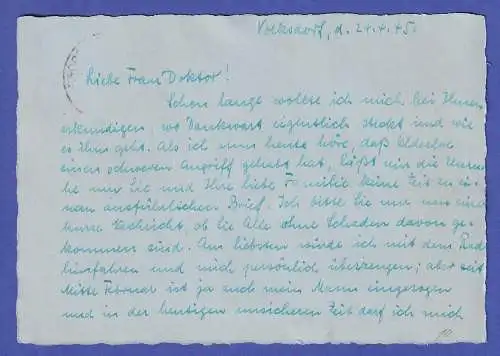 Volksdorf, d. 24.4.45.
Liebe Frau Doktor!
Schon lange wollte ich mich bei Ihnen
erkundigen, wo Dankwart eigentlich steckt und wie
es Ihm geht. Als ich nun heute höre, daß Oldesloe
einen schweren Angriff gehabt hat, läßt mir die Unru-
he um Sie und Ihre liebe Familie keine Zeit zu ei-
nem ausführlichen Brief. Ich bitte Sie nur um eine
kurze Nachricht, ob Sie Alle ohne Schaden davon ge-
kommen sind. Am liebsten würde ich mit dem Rad
hinfahren und mich persönlich überzeugen; aber seit
Mitte Februar ist ja auch mein Mann eingezogen
und in der heutigen unsicheren Zeit darf ich mich